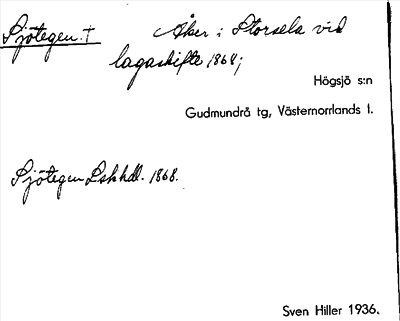 Sjötegen. † Åker i Storsela vid
lagaskifte 1868;
Högsjö s:n
Gudmundrå tg, Västernorrlands l.
Sjötegen Lskhdl. 1868.
Sven Hiller 1936.